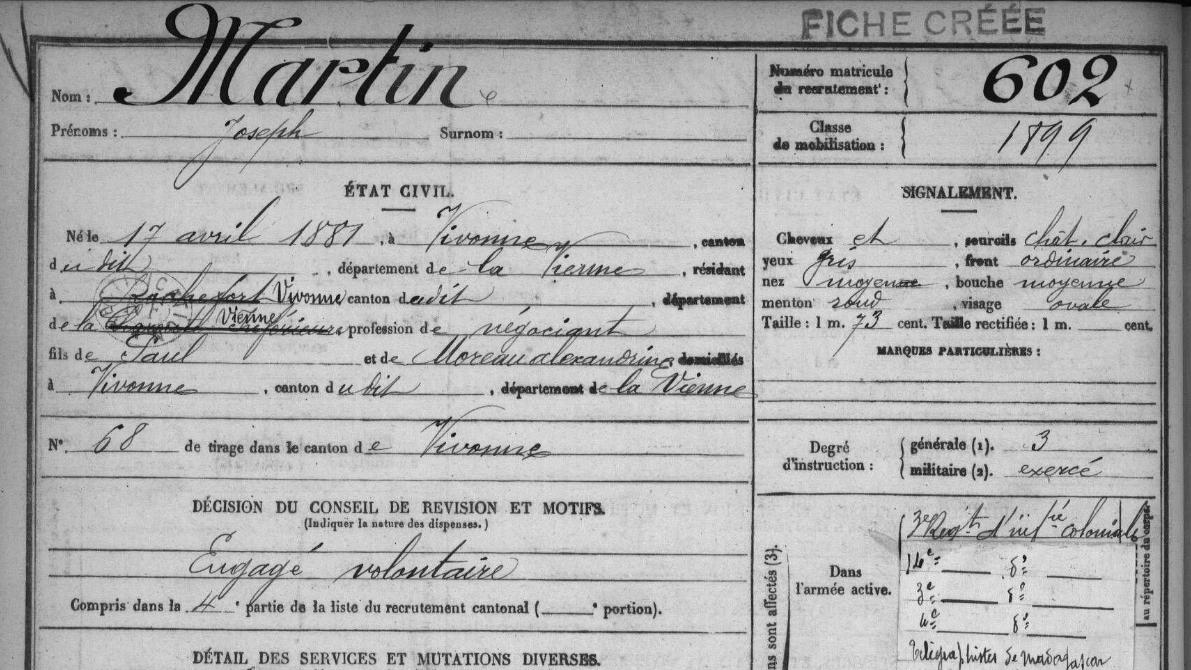 FICHE CRÉÉE
Nom : Martin
Prénoms : Joseph Surnom :
Numéro matricule du recrutement : 602
Classe de mobilisation : 1899
ÉTAT CIVIL.
Né le 17 avril 1881, à Vivonne, canton
dudit, département de la Vienne, résidant
à Rochefort Vivonne canton dudit, département
de la Vienne, profession de négociant
fils de Paul et de Moreau alexandrine domiciliés
à Vivonne, canton dudit, département de la Vienne
N° 68 de tirage dans le canton de Vivonne
DÉCISION DU CONSEIL DE REVISION ET MOTIFS.
(Indiquer la nature des dispenses.)
Engagé volontaire
Compris dans la 4e partie de la liste du recrutement cantonal ( e portion).
DÉTAIL DES SERVICES ET MUTATIONS DIVERSES.
SIGNALEMENT.
Cheveux et, sourcils chât. clair
yeux gris, front ordinaire
nez moyenne, bouche moyenne
menton rond, visage ovale
Taille : 1 m. 73 cent. Taille rectifiée : 1 m. cent.
MARQUES PARTICULIÈRES :
Degré d'instruction : générale (1). 3
militaire (2). exercé
sont affectés (3).
Dans l'armée active.
3e Regt d'inf.rie coloniale
16e d°
3e d°
4e d°
Télégraphistes de madagascar
au répertoire du corps.